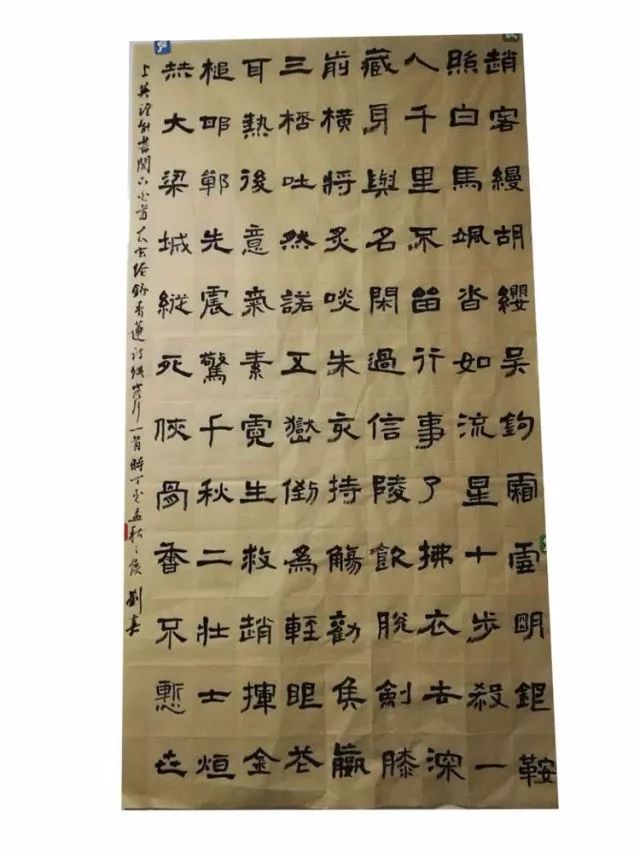 趙客縵胡纓吳鉤霜雪明銀鞍
照白馬颯沓如流星十步殺一
人千里不留行事了拂衣去深
藏身與名閑過信陵飲脫劍膝
前橫將炙啖朱亥持觴勸侯嬴
三桮吐然諾五嶽倒為輕眼花
耳熱後意氣素霓生救趙揮金
槌邯鄲先震驚千秋二壯士烜
赫大梁城縱死俠骨香不慙世
上英誰能書閣下白首太玄經錄青蓮詩俠客行一首時丁酉孟秋之候 劉